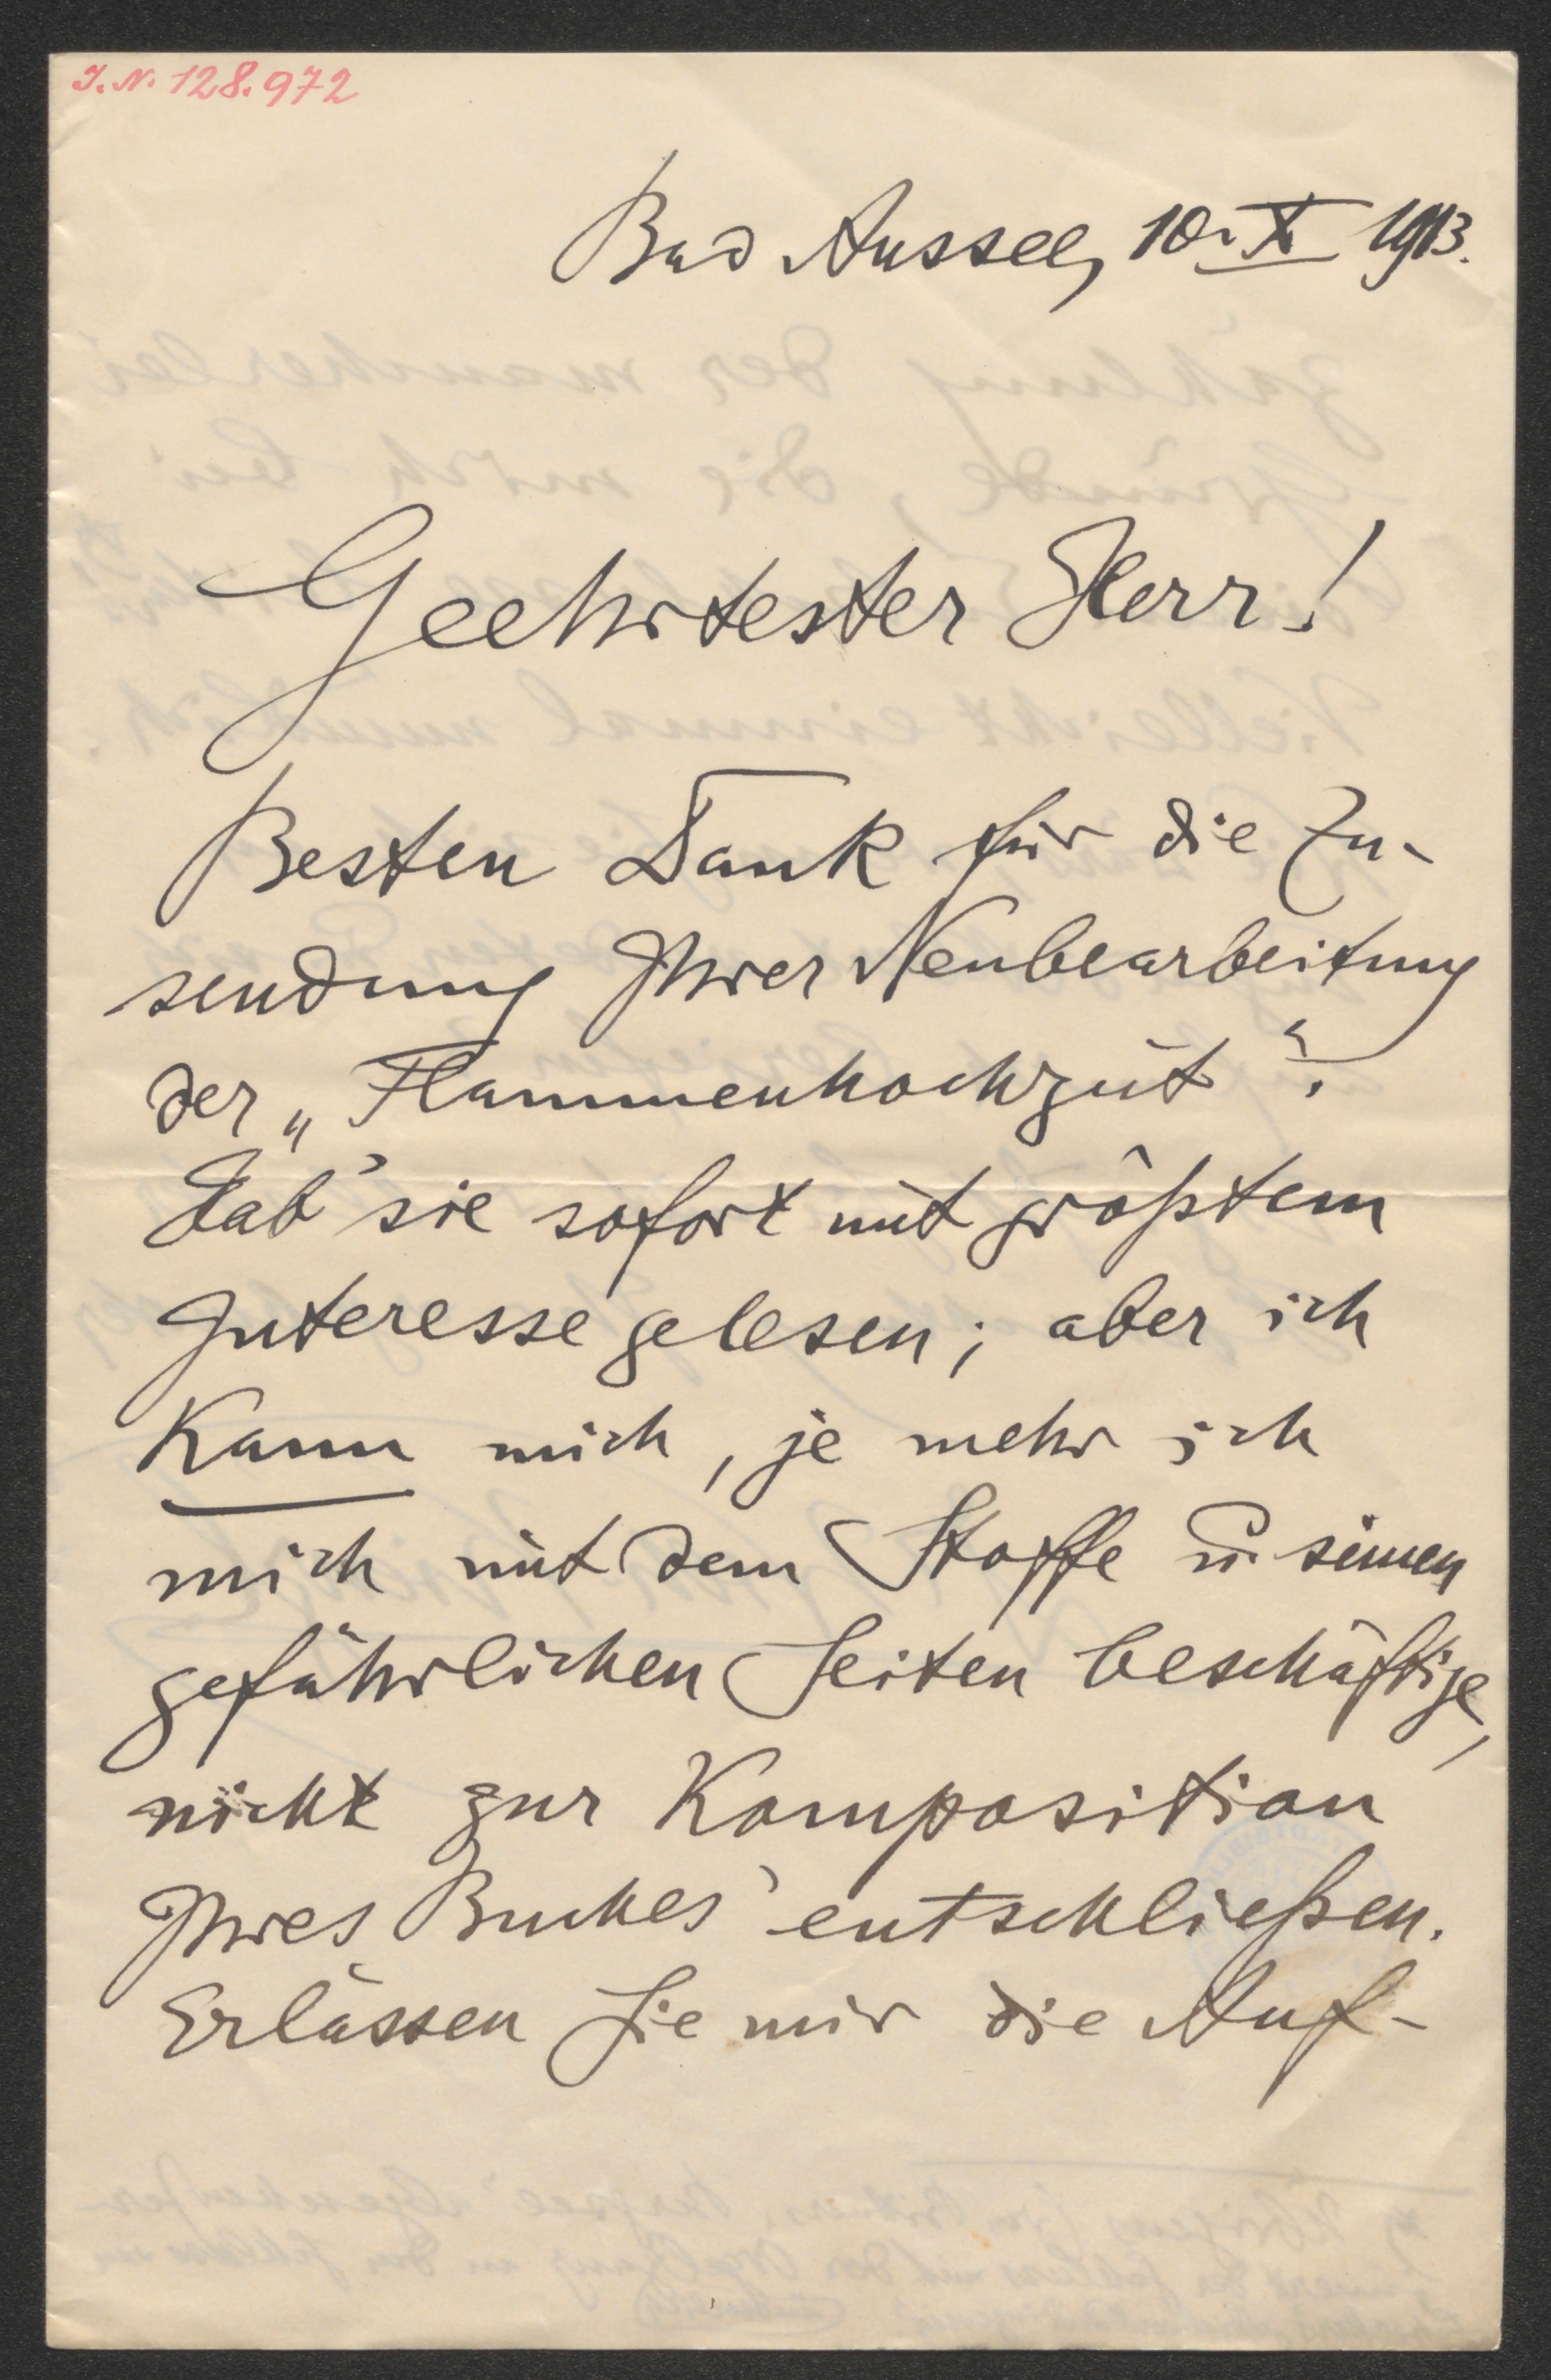 I. N. 128.972
Bad Aussee, 10. X 1913.
Geehrtester Herr!
Besten Dank für die Zu-
sendung Ihrer Neubearbeitung
der „Flammenhochzeit“.
Hab' sie sofort mit größtem
Interesse gelesen; aber ich
kann mich, je mehr ich
mich mit dem Stoffe u. seinen
gefährlichen Seiten beschäftige,
nicht zur Komposition
Ihres Buches entschließen.
Erlassen Sie mir die Auf-